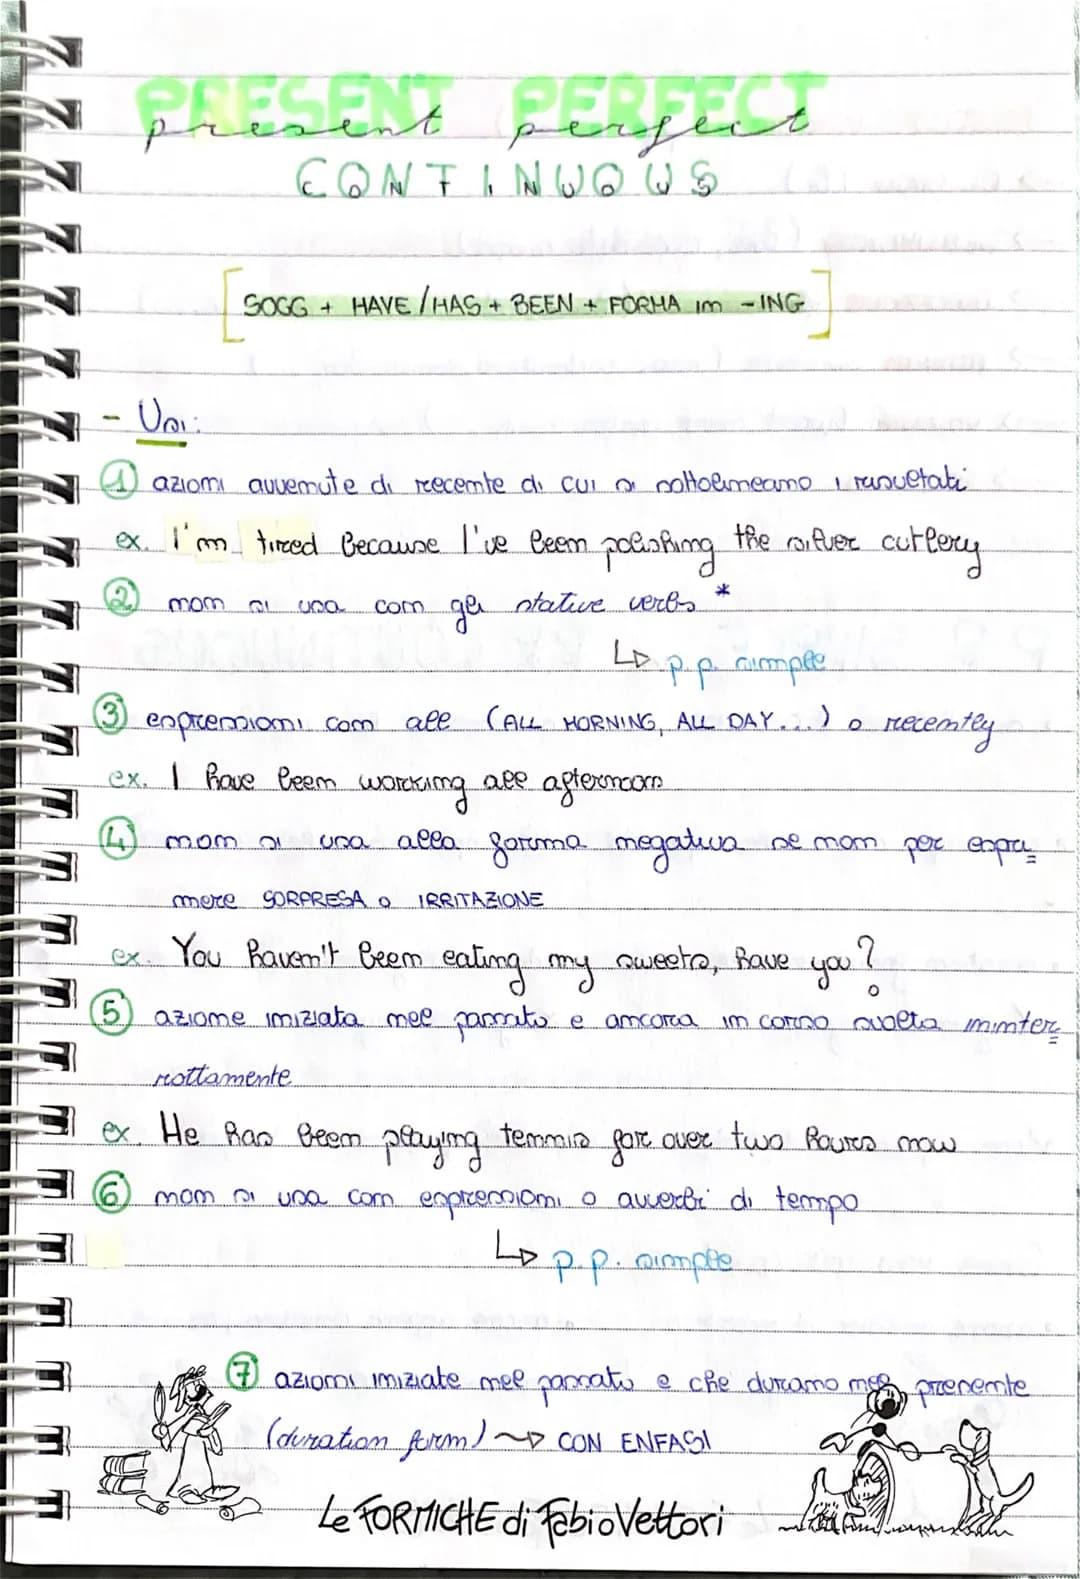 PRESENT PERFECT
present perfect
CONTINUOUS
SOGG + HAVE/HAS + BEEN + FORMA in -ING
- Usi:
1 azioni avvenute di recente di cui si sottolineano i risultati
ex. I'm tired because I've been polishing the silver cutlery
2 non si usa con gli stative verbs *
↳ p.p. simple
3 espressioni con all (ALL MORNING, ALL DAY...) o recently
ex. I have been working all afternoon
4 non si usa alla forma negativa se non per espri=
mere SORPRESA o IRRITAZIONE
ex. You haven't been eating my sweets, have you?
5 azione iniziata nel passato e ancora in corso svolta ininter=
rottamente
ex. He has been playing tennis for over two hours now
6 non si usa con espressioni o avverbi di tempo
↳ p.p. simple
7 azioni iniziate nel passato e che durano nel presente
(duration form) → CON ENFASI
Le FORMICHE di Fabio Vettori